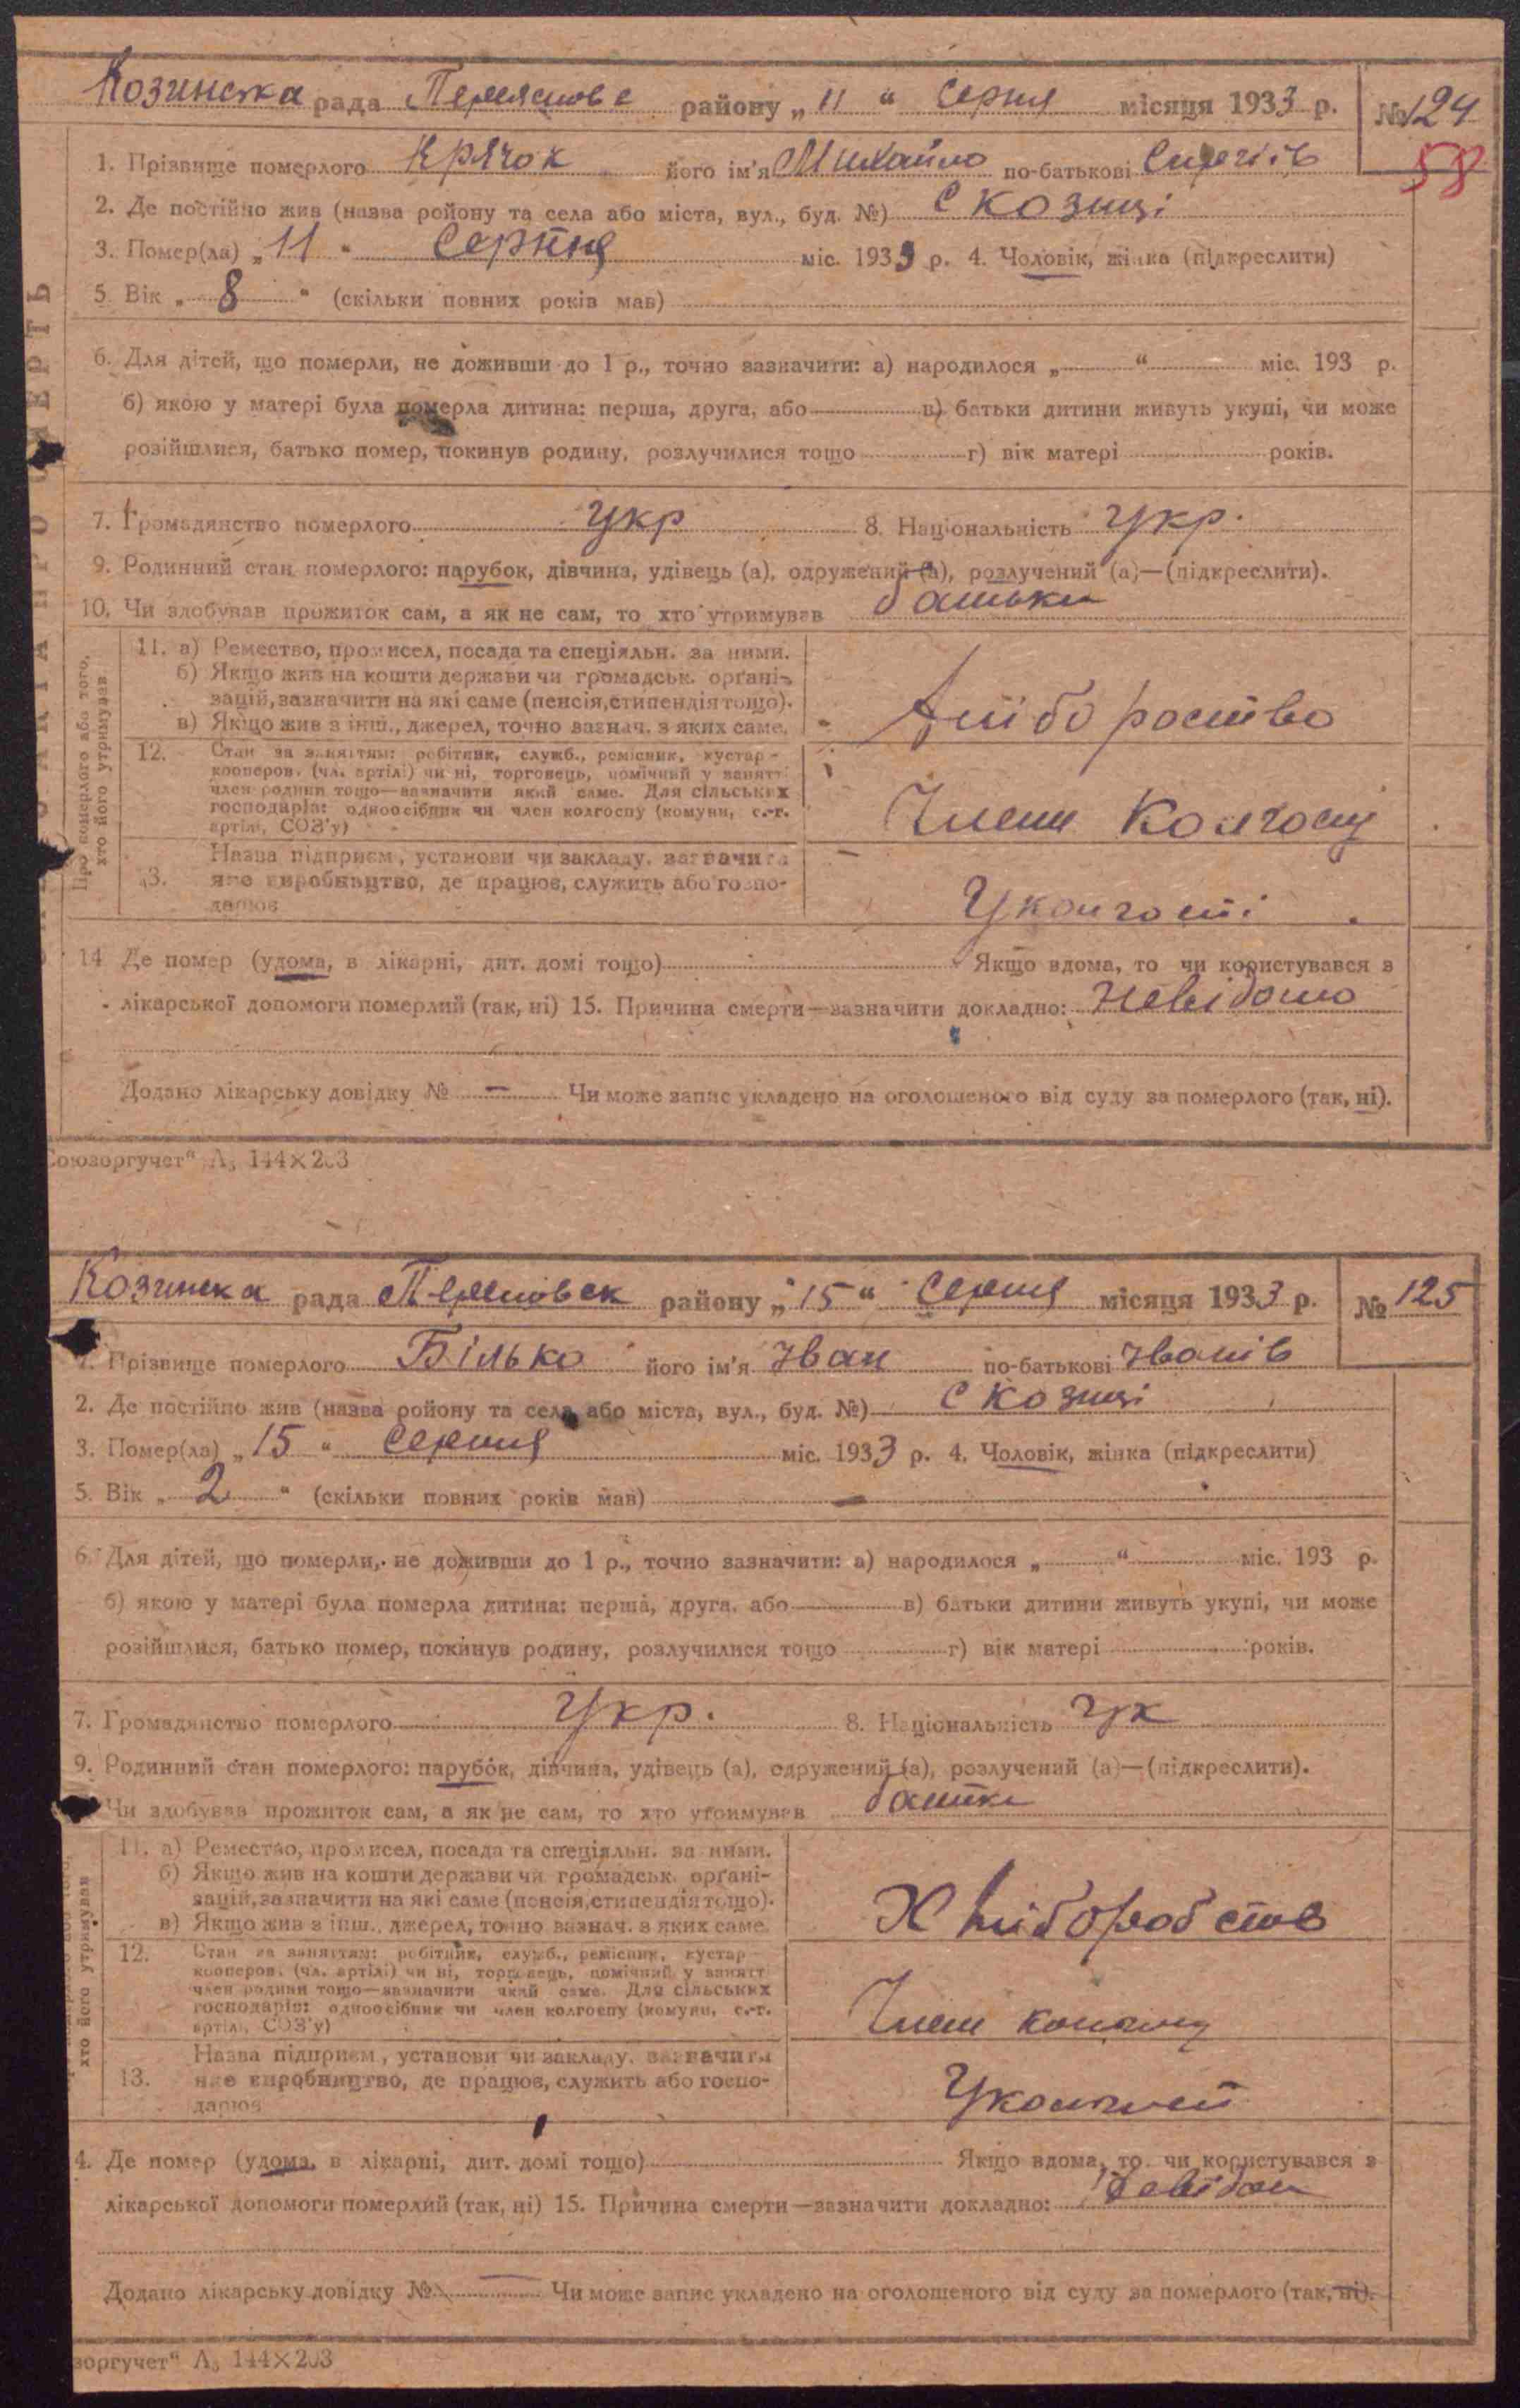 Козинська рада Переяслове району „ 11 “ Серпня місяця 1933 р. № 124
58
1. Прізвище померлого Крячок його ім'я Михайло по-батькові Сергіїв
2. Де постійно жив (назва ройону та села або міста, вул., буд. №) с Козинці
3. Помер(ла) „ 11 “ Серпня міс. 1933 р. 4. Чоловік, жінка (підкреслити)
5. Вік „ 8 “ (скільки повних років мав)
6. Для дітей, що померли, не доживши до 1 р., точно зазначити: а) народилося „ “ міс. 193 р.
б) якою у матері була померла дитина: перша, друга, або в) батьки дитини живуть укупі, чи може
розійшлися, батько помер, покинув родину, розлучилися тощо г) вік матері років.
7. Громадянство померлого Укр 8. Національність Укр.
9. Родинний стан померлого: парубок, дівчина, удівець (а), одружений (а), розлучений (а)—(підкреслити).
10. Чи здобував прожиток сам, а як не сам, то хто утримував батьки
Про померлого або того,
хто його утримував
11. а) Ремество, промисел, посада та спеціяльн. за ними.
б) Якщо жив на кошти держави чи громадськ. орґані-
зацій, зазначити на які саме (пенсія, стипендія тощо).
в) Якщо жив з інш., джерел, точно зазнач. з яких саме.
12. Стан за заняттям: робітник, служб., ремісник, кустар-
кооперов. (чл. артілі) чи ні, торговець, помічний у занятт
член родини тощо—зазначити який саме. Для сільських
господарів: одноосібник чи член колгоспу (комуни, с.-г.
артілі, СОЗ'у)
Член Колгоспу
Назва підприєм, установи чи закладу. зазначити
13. яке виробництво, де працює, служить або госпо-
дарює
Уколгоспі
14 Де помер (удома, в лікарні, дит. домі тощо) Якщо вдома, то чи користувався з
лікарської допомоги померлий (так, ні) 15. Причина смерти—зазначити докладно: Невідомо
Додано лікарську довідку № — Чи може запис укладено на оголошеного від суду за померлого (так, ні).
Союзоргучет“ А₅ 144×203
Козинска рада Переяславск району „ 15 “ Серпня місяця 1933 р. № 125
1. Прізвище померлого Білько його ім'я Іван по-батькові Іванів
2. Де постійно жив (назва ройону та села або міста, вул., буд. №) с Козинці
3. Помер(ла) „ 15 “ Серпня міс. 1933 р. 4. Чоловік, жінка (підкреслити)
5. Вік „ 2 “ (скільки повних років мав) —
6. Для дітей, що померли, не доживши до 1 р., точно зазначити: а) народилося „ “ міс. 193 р.
б) якою у матері була померла дитина: перша, друга, або в) батьки дитини живуть укупі, чи може
розійшлися, батько помер, покинув родину, розлучилися тощо г) вік матері років.
7. Громадянство померлого Укр. 8. Національність Ук
9. Родинний стан померлого: парубок, дівчина, удівець (а), одружений (а), розлучений (а)—(підкреслити).
Чи здобував прожиток сам, а як не сам, то хто утримував батьки
хто його утримував
11. а) Ремество, промисел, посада та спеціяльн. за ними.
б) Якщо жив на кошти держави чи громадськ. орґані-
зацій, зазначити на які саме (пенсія, стипендія тощо).
в) Якщо жив з інш., джерел, точно зазнач. з яких саме.
Хліборобств
12. Стан за заняттям: робітник, служб., ремісник, кустар-
кооперов. (чл. артілі) чи ні, торговець, помічний у занятт
член родини тощо—зазначити який саме. Для сільських
господарів: одноосібник чи член колгоспу (комуни, с.-г.
артілі, СОЗ'у)
Член колгоспу
Назва підприєм, установи чи закладу. зазначити
13. яке виробництво, де працює, служить або госпо-
дарює
Уколгоспі
4. Де помер (удома, в лікарні, дит. домі тощо) Якщо вдома, то чи користувався з
лікарської допомоги померлий (так, ні) 15. Причина смерти—зазначити докладно: Невідом
Додано лікарську довідку № — Чи може запис укладено на оголошеного від суду за померлого (так, ні).
зоргучет“ А₅ 144×203